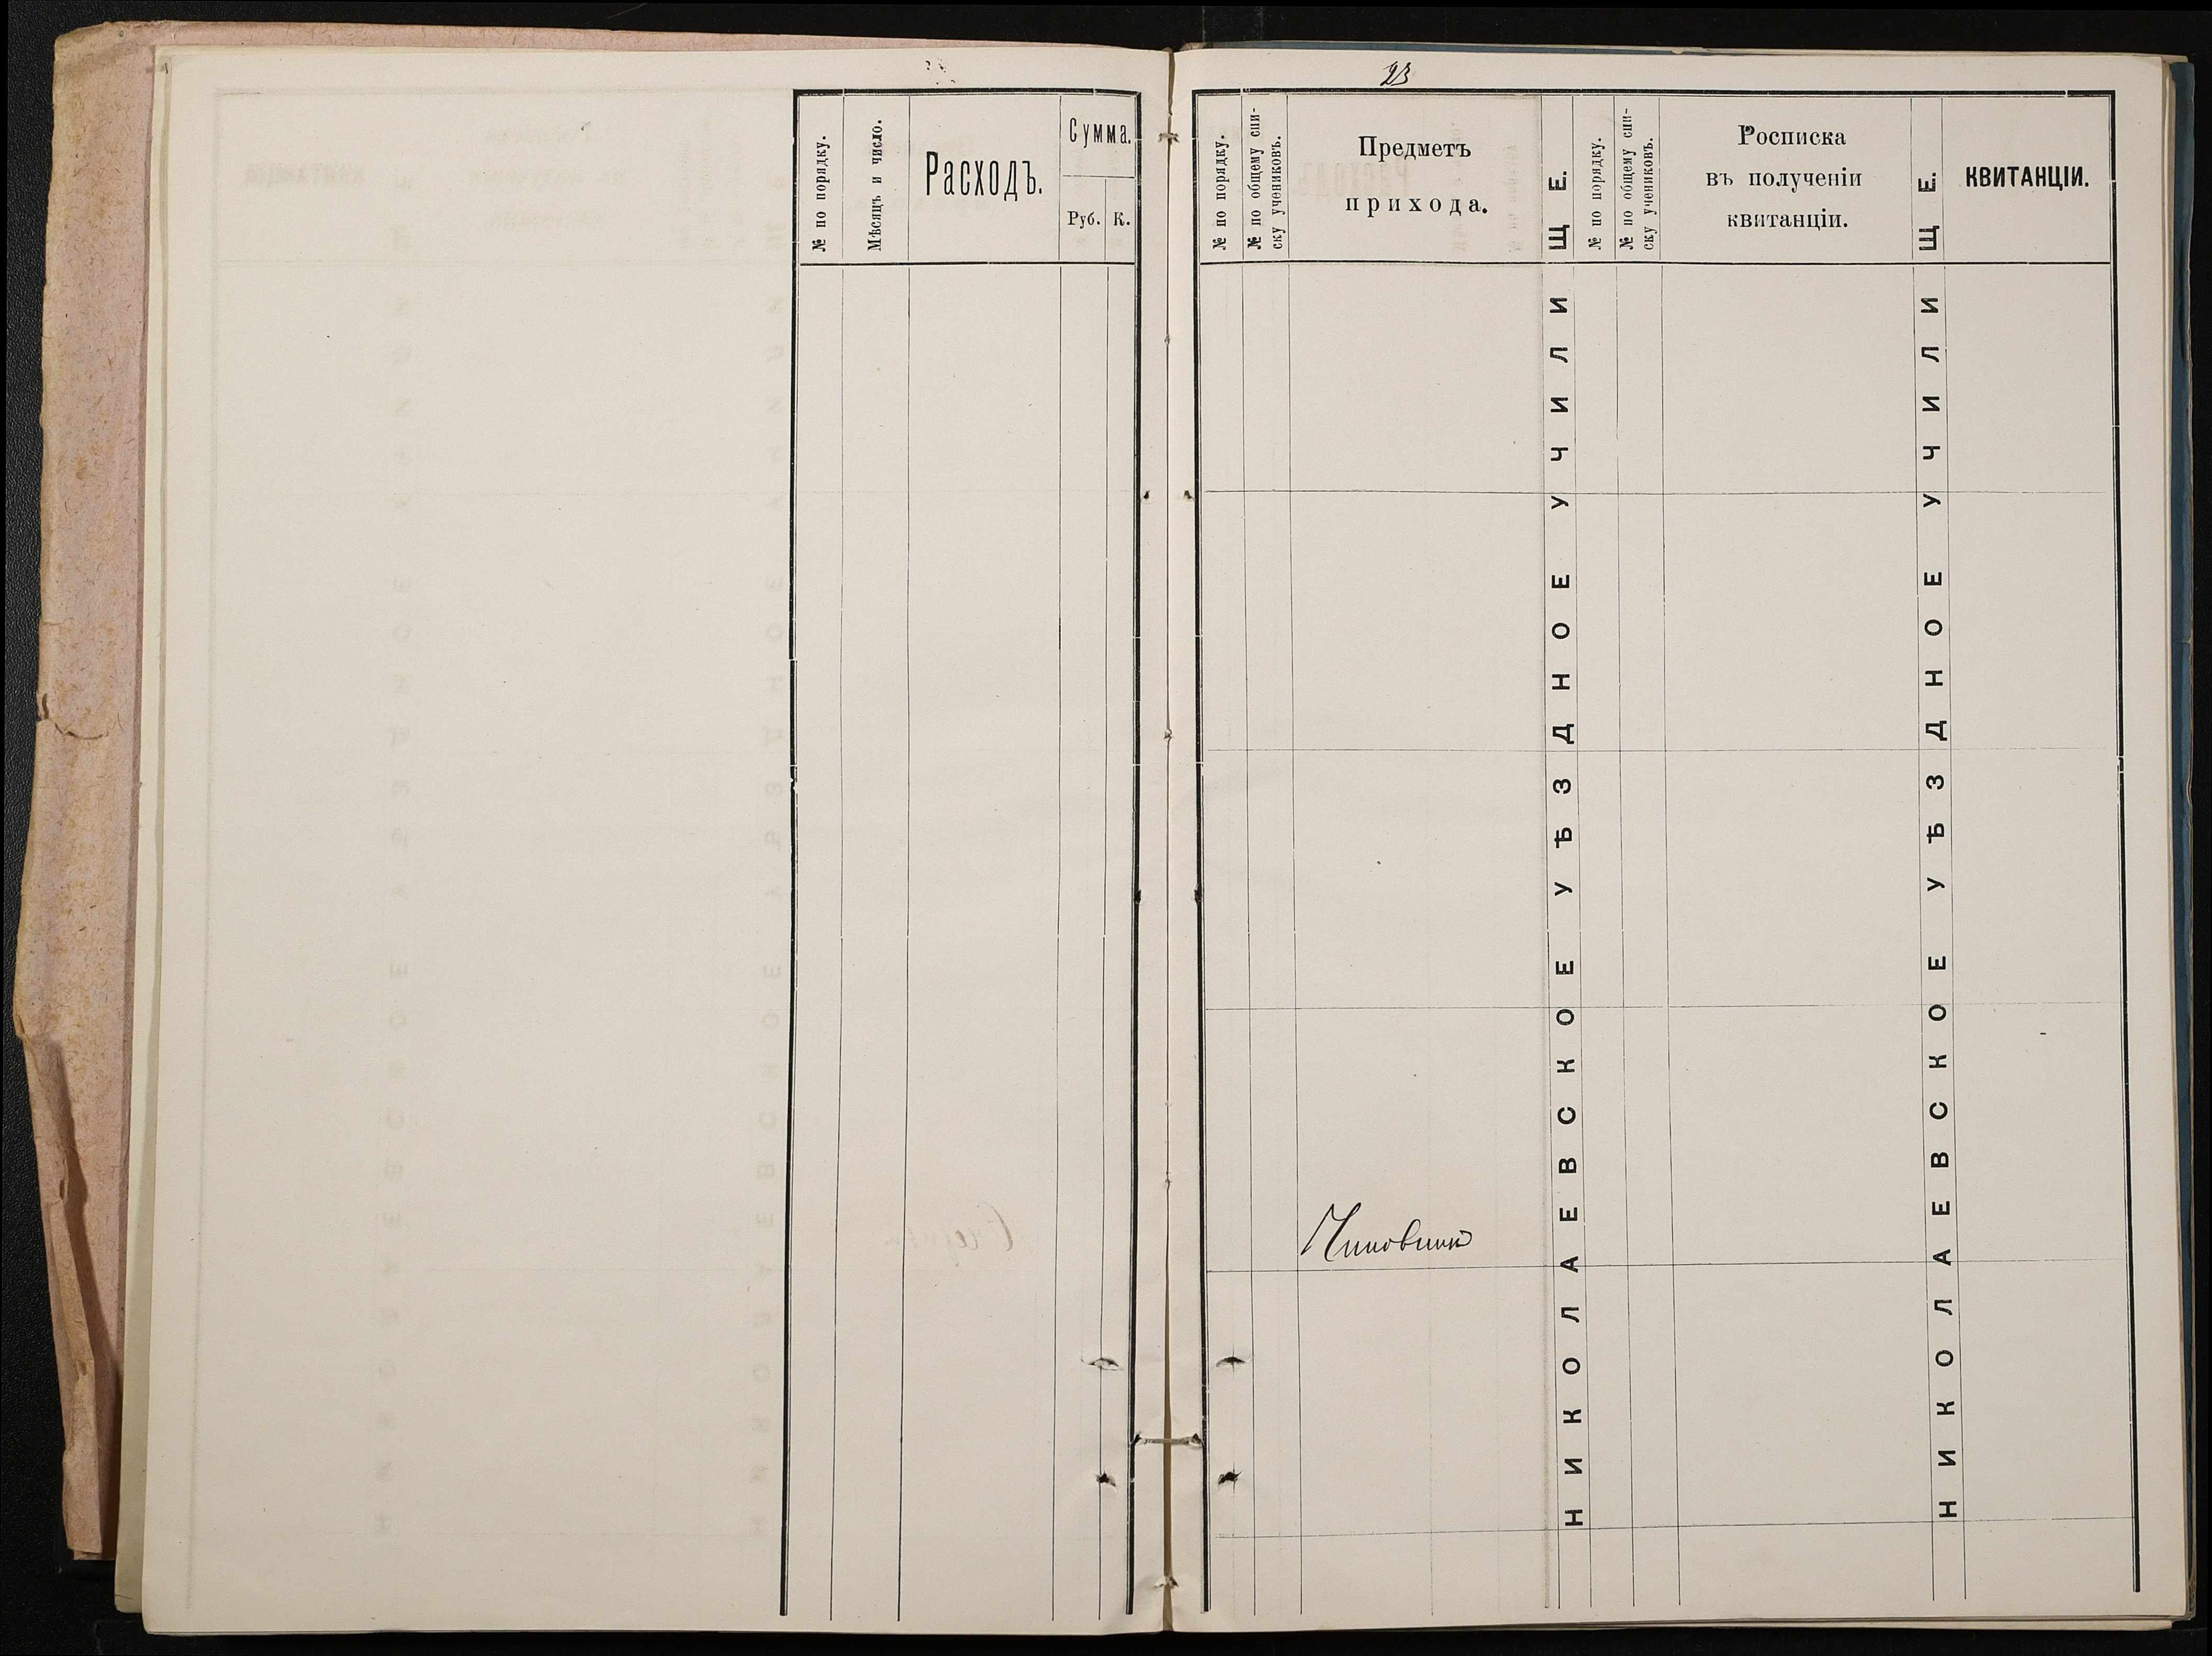 № по порядку.
Мѣсяцъ и число.
Расходъ.
Сумма.
Руб. К.
23
№ по порядку.
№ по общему спи-
ску учениковъ.
Предметъ
прихода.
НИКОЛАЕВСКОЕ УѢЗДНОЕ УЧИЛИЩЕ.
№ по порядку.
№ по общему спи-
ску учениковъ.
Росписка
въ полученіи
квитанціи.
НИКОЛАЕВСКОЕ УѢЗДНОЕ УЧИЛИЩЕ.
КВИТАНЦІИ.
Чиновникъ